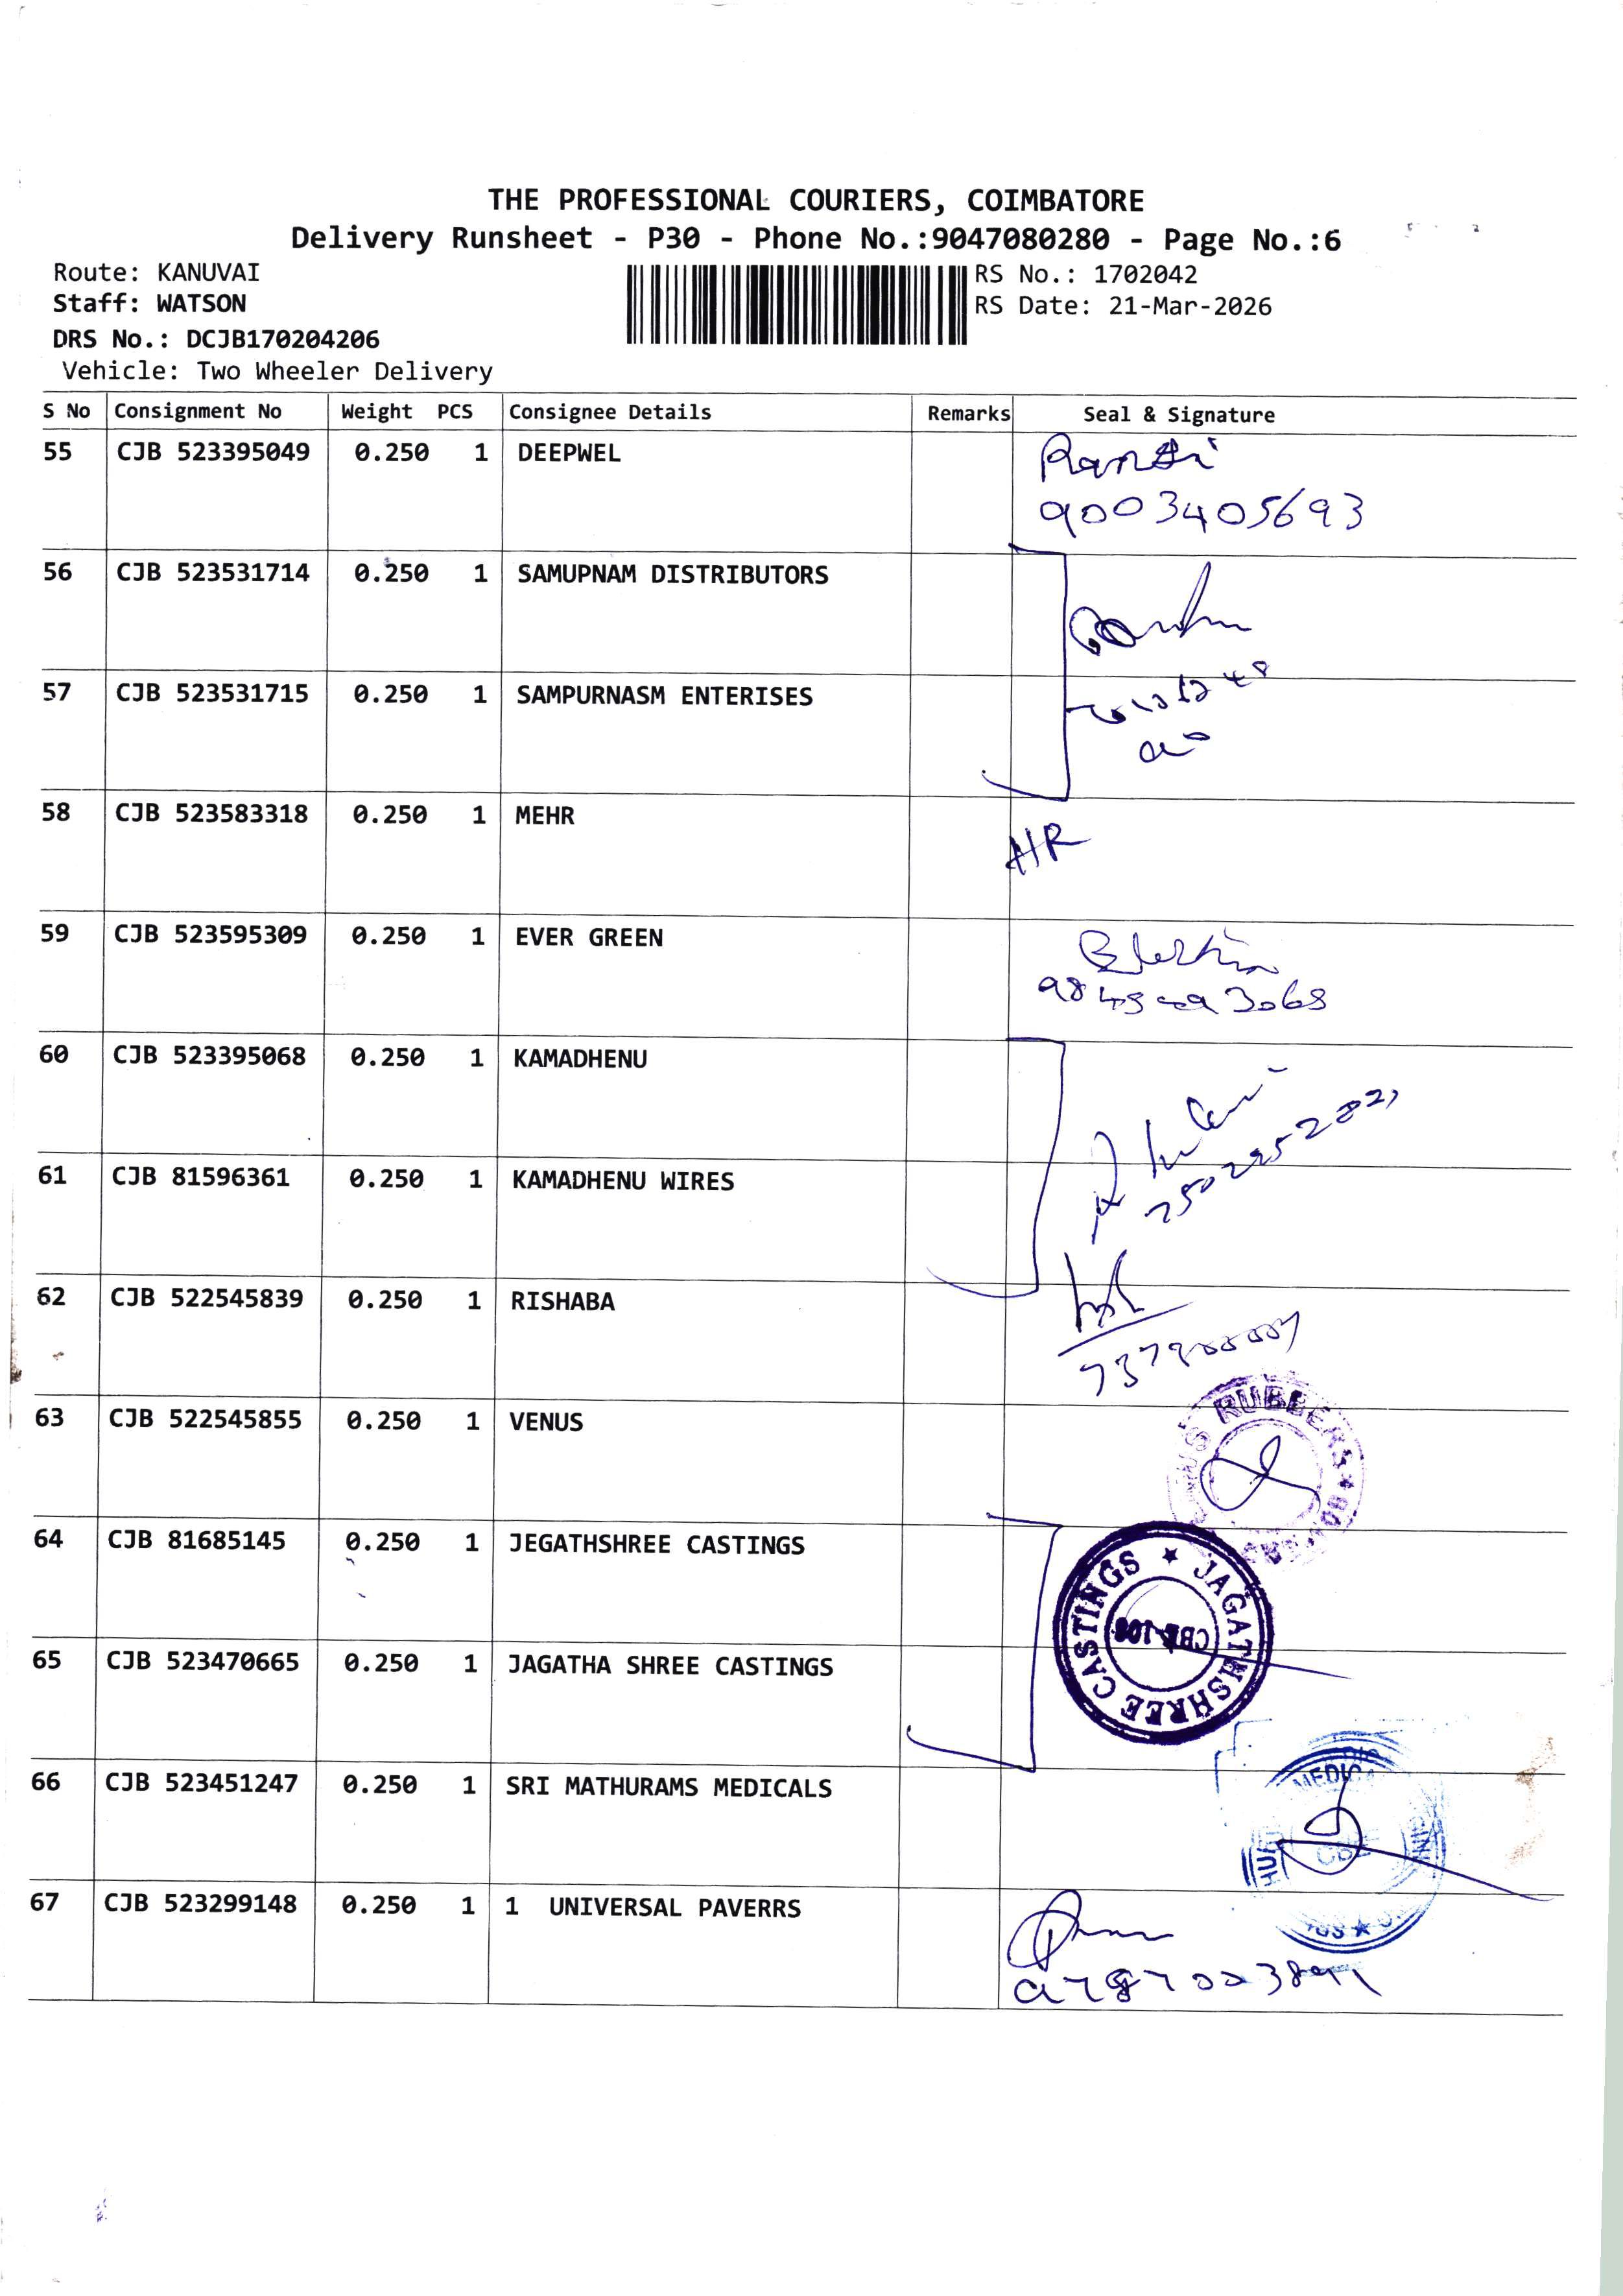 THE PROFESSIONAL COURIERS, COIMBATORE
Delivery Runsheet - P30 - Phone No.:9047080280 - Page No.:6
Route: KANUVAI
RS No.: 1702042
Staff: WATSON
RS Date: 21-Mar-2026
DRS No.: DCJB170204206
Vehicle: Two Wheeler Delivery
S No Consignment No Weight PCS Consignee Details Remarks Seal & Signature
55 CJB 523395049 0.250 1 DEEPWEL
9003405693
56 CJB 523531714 0.250 1 SAMUPNAM DISTRIBUTORS
57 CJB 523531715 0.250 1 SAMPURNASM ENTERISES
58 CJB 523583318 0.250 1 MEHR
59 CJB 523595309 0.250 1 EVER GREEN
60 CJB 523395068 0.250 1 KAMADHENU
61 CJB 81596361 0.250 1 KAMADHENU WIRES
62 CJB 522545839 0.250 1 RISHABA
63 CJB 522545855 0.250 1 VENUS
RUBBERS
64 CJB 81685145 0.250 1 JEGATHSHREE CASTINGS
★ JAGATHSHREE CASTINGS
65 CJB 523470665 0.250 1 JAGATHA SHREE CASTINGS
66 CJB 523451247 0.250 1 SRI MATHURAMS MEDICALS
CBE
67 CJB 523299148 0.250 1 1 UNIVERSAL PAVERRS